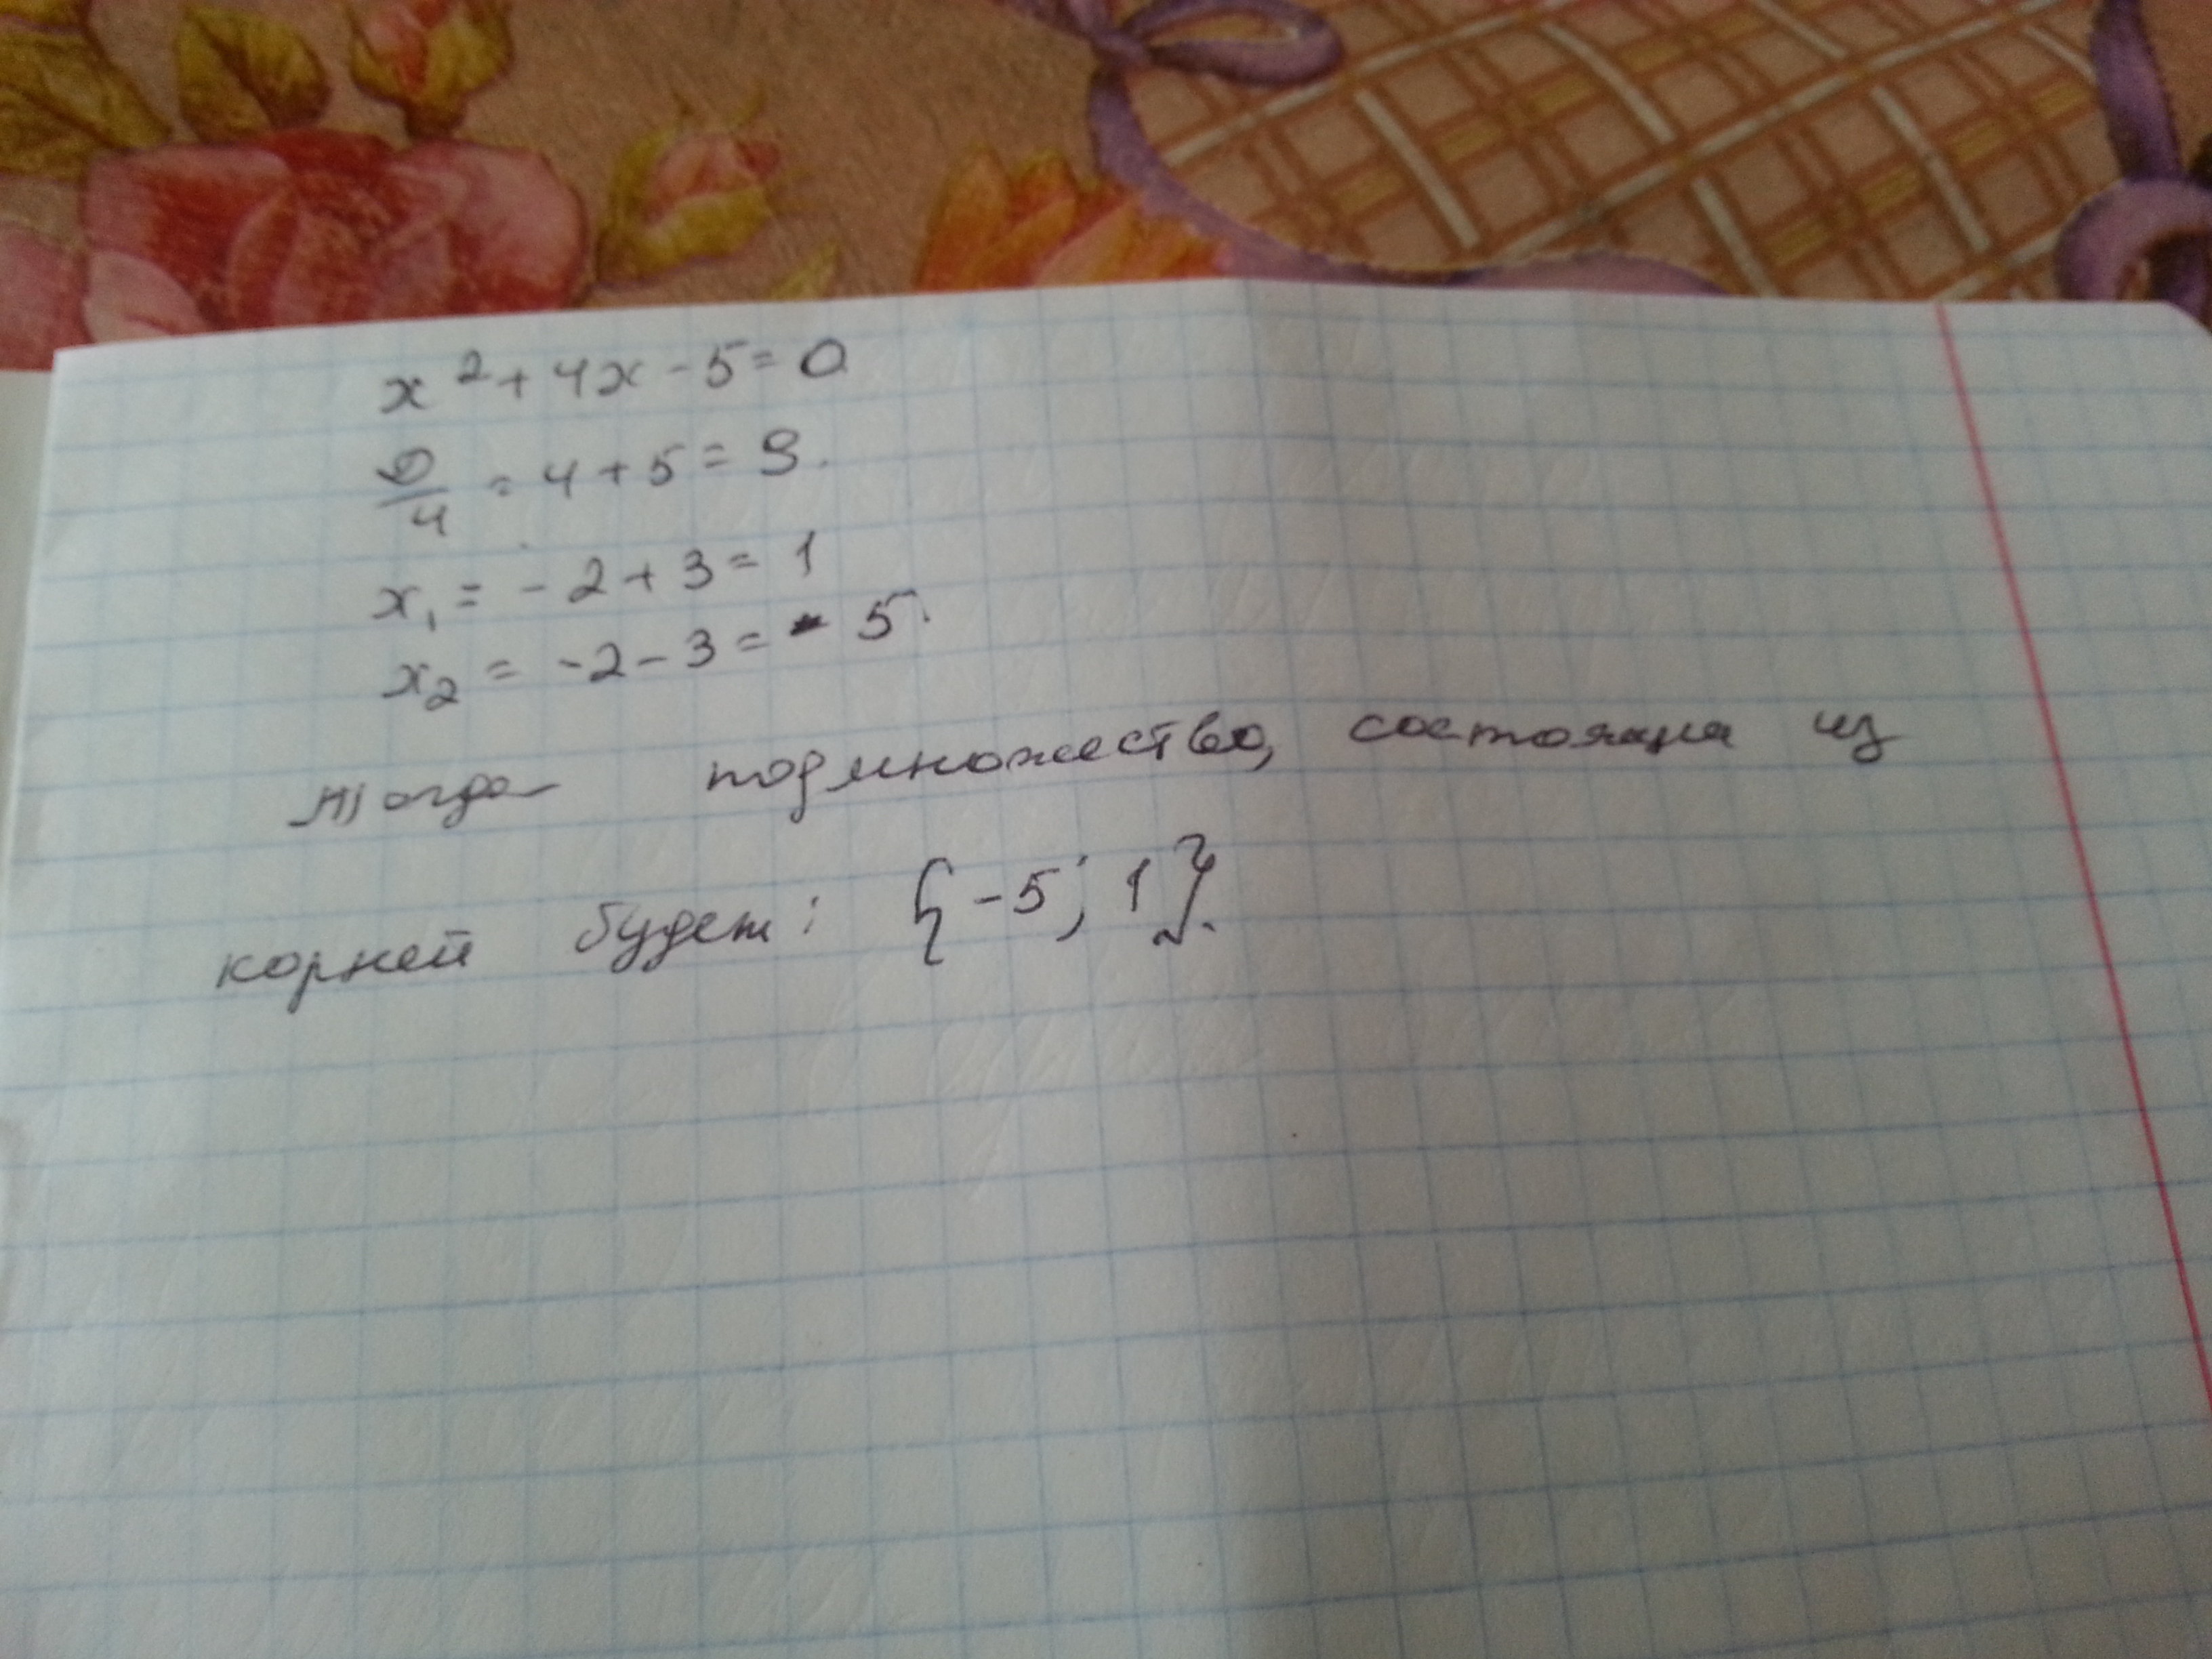 x² + 4x - 5 = 0
D/4 = 4 + 5 = 9.
x₁ = - 2 + 3 = 1
x₂ = - 2 - 3 = - 5.
Тогда подмножество, состоящая из
корней будет: {-5; 1}.